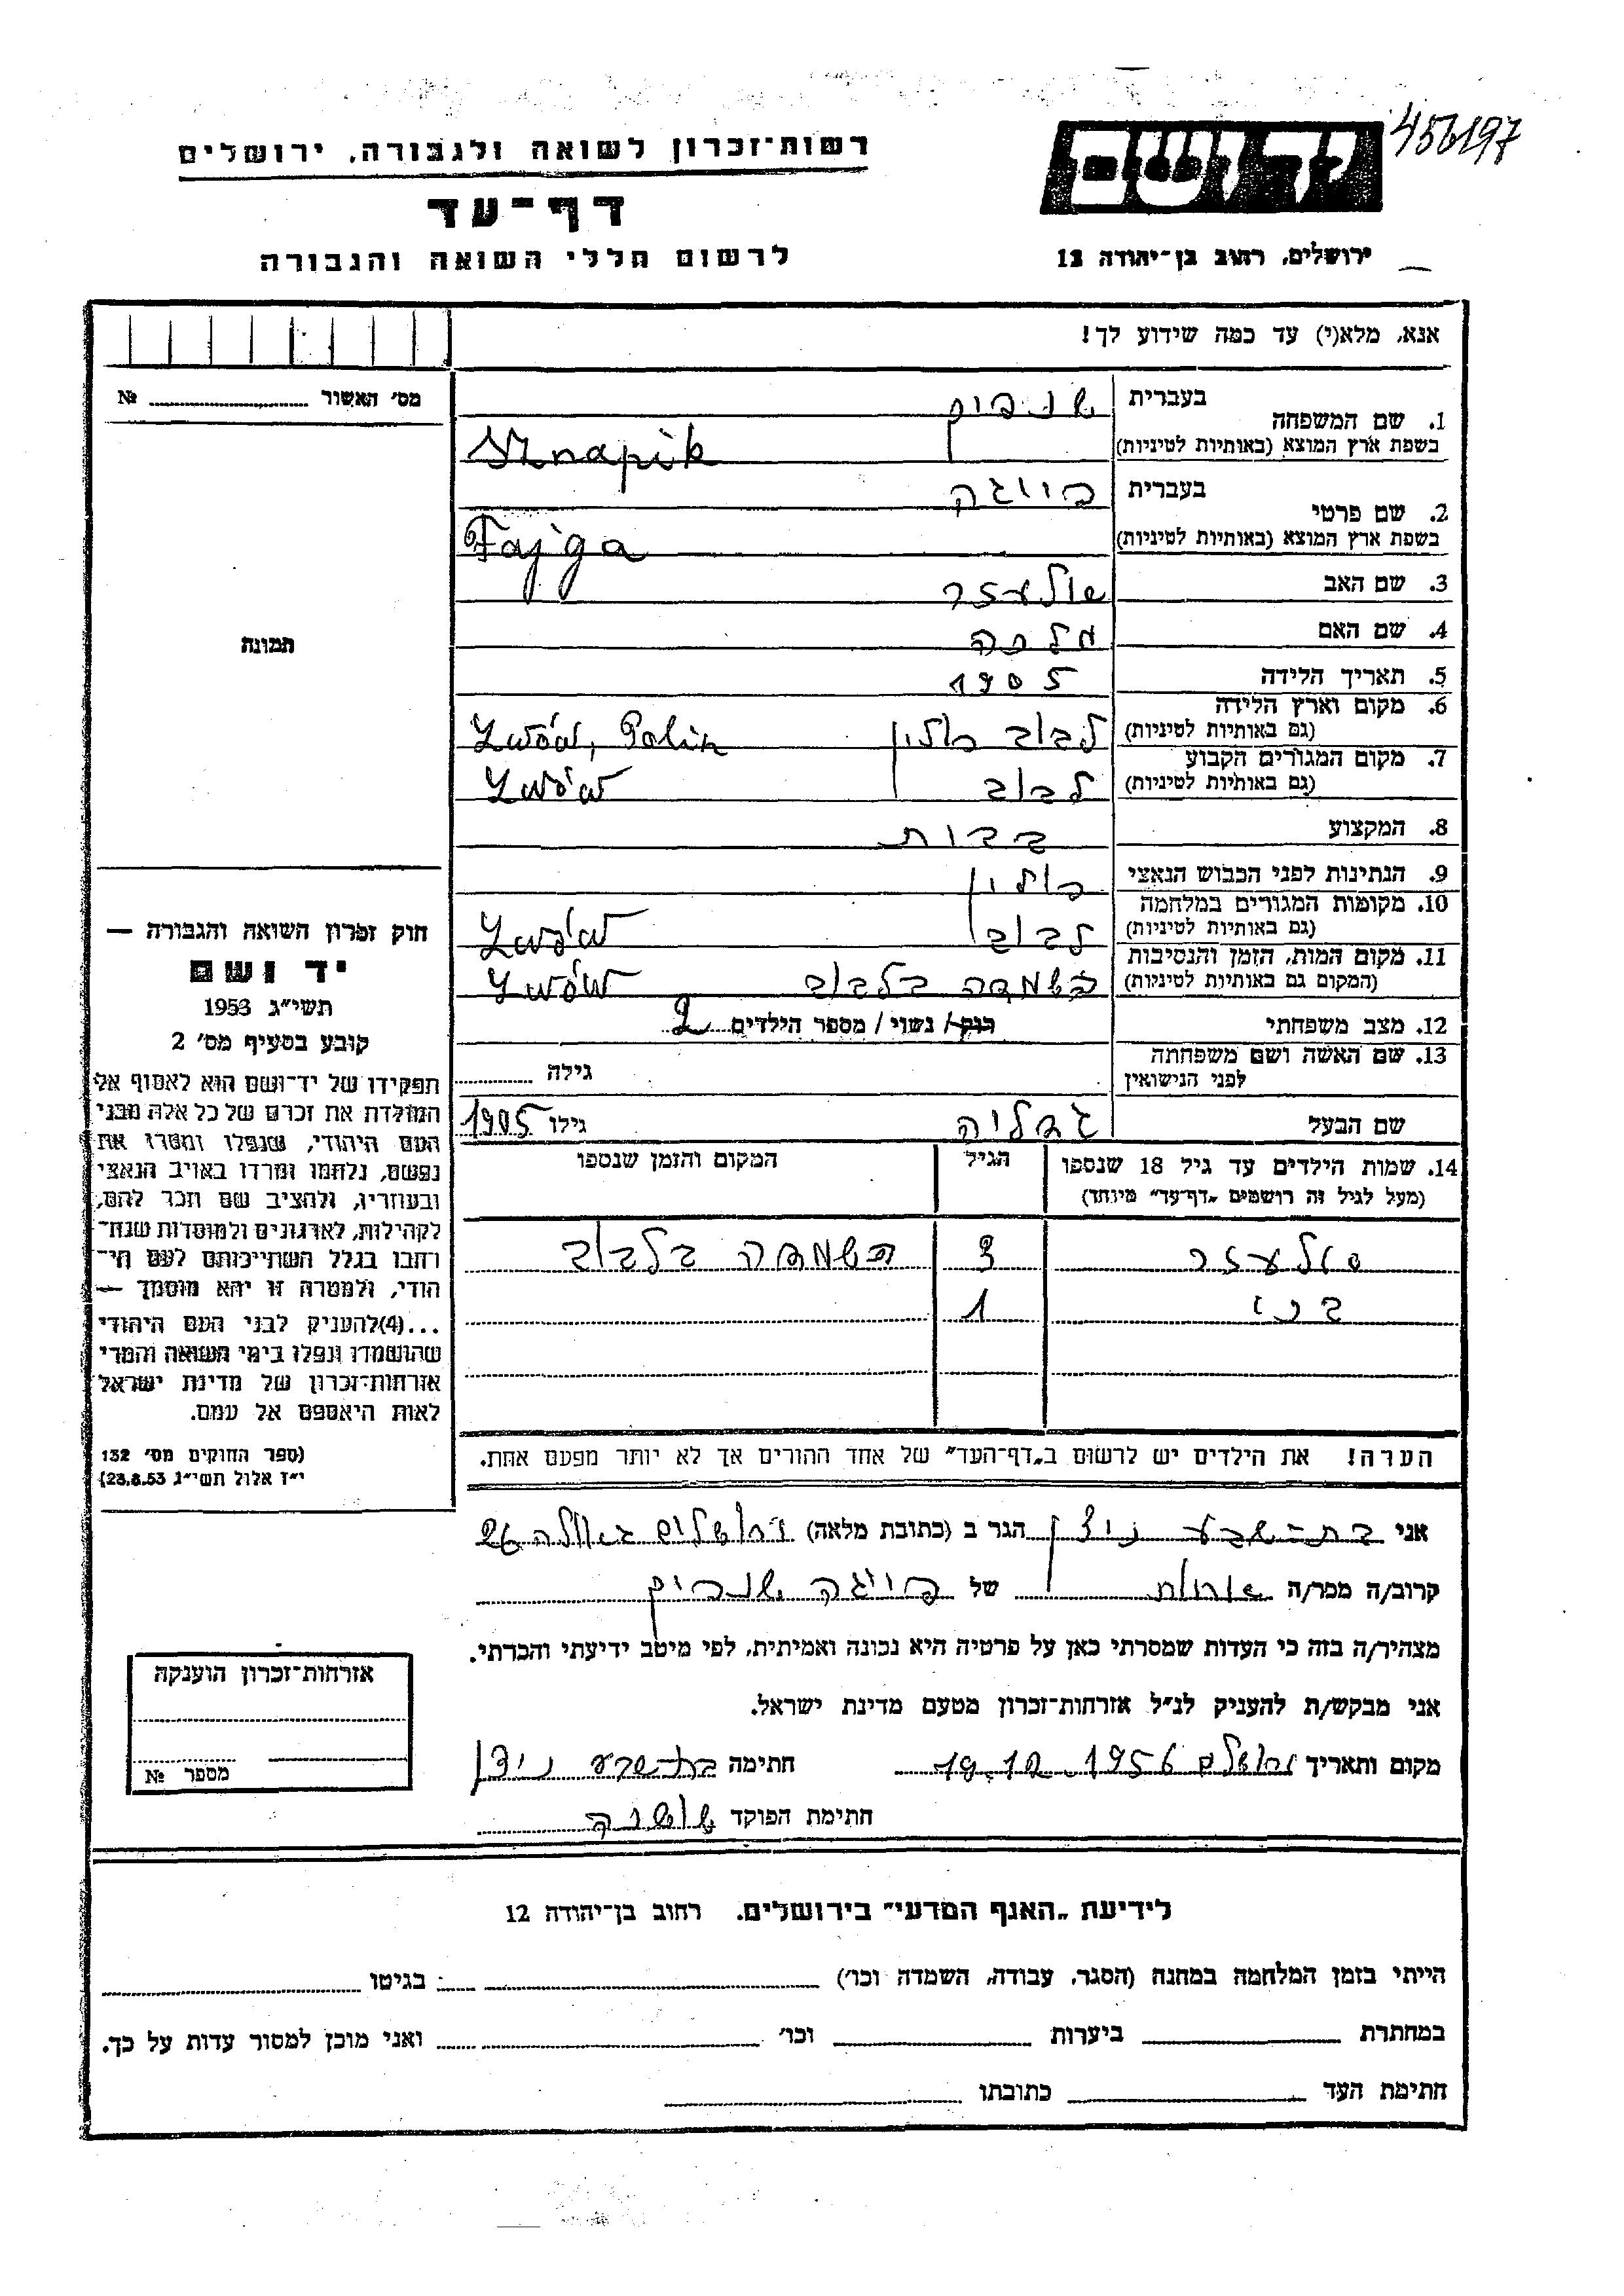 456197
יד ושם
רשות־זכרון לשואה ולגבורה, ירושלים
דף־עד
לרשום חללי השואה והגבורה
ירושלים, רחוב בן־יהודה 12
אנא, מלא(י) עד כמה שידוע לך!
מס׳ האשור № 
1. שם המשפחה
בעברית
בשפת ארץ המוצא (באותיות לטיניות)
Sznapik
2. שם פרטי
בעברית פייגה
בשפת ארץ המוצא (באותיות לטיניות)
Fajga
3. שם האב
4. שם האם מלכה
תמונה
5. תאריך הלידה 1905
6. מקום וארץ הלידה
(גם באותיות לטיניות) לבוב פולין Lwów, Polin
7. מקום המגורים הקבוע
(גם באותיות לטיניות) לבוב Lwów
8. המקצוע
9. הנתינות לפני הכבוש הנאצי פולין
10. מקומות המגורים במלחמה
(גם באותיות לטיניות) לבוב Lwów
11. מקום המות, הזמן והנסיבות
(המקום גם באותיות לטיניות) השמדה בלבוב Lwów
12. מצב משפחתי רוק / נשוי / מספר הילדים 2
13. שם האשה ושם משפחתה
לפני הנישואין גילה
שם הבעל גדליה גילו 1905
14. שמות הילדים עד גיל 18 שנספו הגיל המקום והזמן שנספו
(מעל לגיל זה רושמים „דף־עד״ מיוחד)
3 השמדה בלבוב
1
הערה! את הילדים יש לרשום ב„דף־העד״ של אחד ההורים אך לא יותר מפעם אחת.
חוק זכרון השואה והגבורה —
יד ושם
תשי״ג 1953
קובע בסעיף מס׳ 2
תפקידו של יד־ושם הוא לאסוף אל
המולדת את זכרם של כל אלה מבני
העם היהודי, שנפלו ומסרו את
נפשם, נלחמו ומרדו באויב הנאצי
ובעוזריו, ולהציב שם וזכר להם,
לקהילות, לארגונים ולמוסדות שנח־
רבו בגלל השתייכותם לעם הי־
הודי, ולמטרה זו יהא מוסמך —
...(4) להעניק לבני העם היהודי
שהושמדו ונפלו בימי השואה והמרי
אזרחות־זכרון של מדינת ישראל
לאות היאספם אל עמם.
(ספר החוקים מס׳ 132
י״ז אלול תשי״ג, 28.8.53)
אני בת־שבע ניצן הגר ב (כתובת מלאה) ירושלים גאולה 26
קרוב/ה מכר/ה אחות של פייגה
מצהיר/ה בזה כי העדות שמסרתי כאן על פרטיה היא נכונה ואמיתית, לפי מיטב ידיעתי והכרתי.
אני מבקש/ת להעניק לנ״ל אזרחות־זכרון מטעם מדינת ישראל.
מקום ותאריך ירושלים 19.12.1956 חתימה בת־שבע ניצן
חתימת הפוקד שושנה
אזרחות־זכרון הוענקה
מספר №
לידיעת „האגף המדעי״ בירושלים. רחוב בן־יהודה 12
הייתי בזמן המלחמה במחנה (הסגר, עבודה, השמדה וכו׳) בגיטו
במחתרת ביערות וכו׳ ואני מוכן למסור עדות על כך.
חתימת העד כתובתו